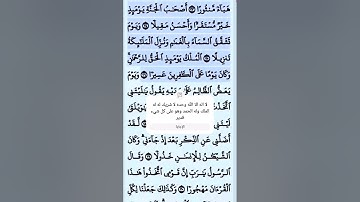 هَبَآءً مَّنثُورًا ٢٣ أَصۡحَٰبُ ٱلۡجَنَّةِ يَوۡمَئِذٍ
خَيۡرٌ مُّسۡتَقَرًّا وَأَحۡسَنُ مَقِيلًا ٢٤ وَيَوۡمَ
تَشَقَّقُ ٱلسَّمَآءُ بِٱلۡغَمَٰمِ وَنُزِّلَ ٱلۡمَلَٰٓئِكَةُ
تَنزِيلًا ٢٥ ٱلۡمُلۡكُ يَوۡمَئِذٍ ٱلۡحَقُّ لِلرَّحۡمَٰنِ
وَكَانَ يَوۡمًا عَلَى ٱلۡكَٰفِرِينَ عَسِيرًا ٢٦ وَيَوۡمَ
يَعَضُّ ٱلظَّالِمُ يَدَيۡهِ يَقُولُ يَٰلَيۡتَنِي
لا اله الا الله وحده لا شريك له له
الملك وله الحمد وهو على كل شيء
قدير
أَضَلَّنِي عَنِ ٱلذِّكۡرِ بَعۡدَ إِذۡ جَآءَنِي وَكَانَ
ٱلشَّيۡطَٰنُ لِلۡإِنسَٰنِ خَذُولًا ٢٩ وَقَالَ
ٱلرَّسُولُ يَٰرَبِّ إِنَّ قَوۡمِي ٱتَّخَذُواْ هَٰذَا
ٱلۡقُرۡءَانَ مَهۡجُورًا ٣٠ وَكَذَٰلِكَ جَعَلۡنَا لِكُلِّ